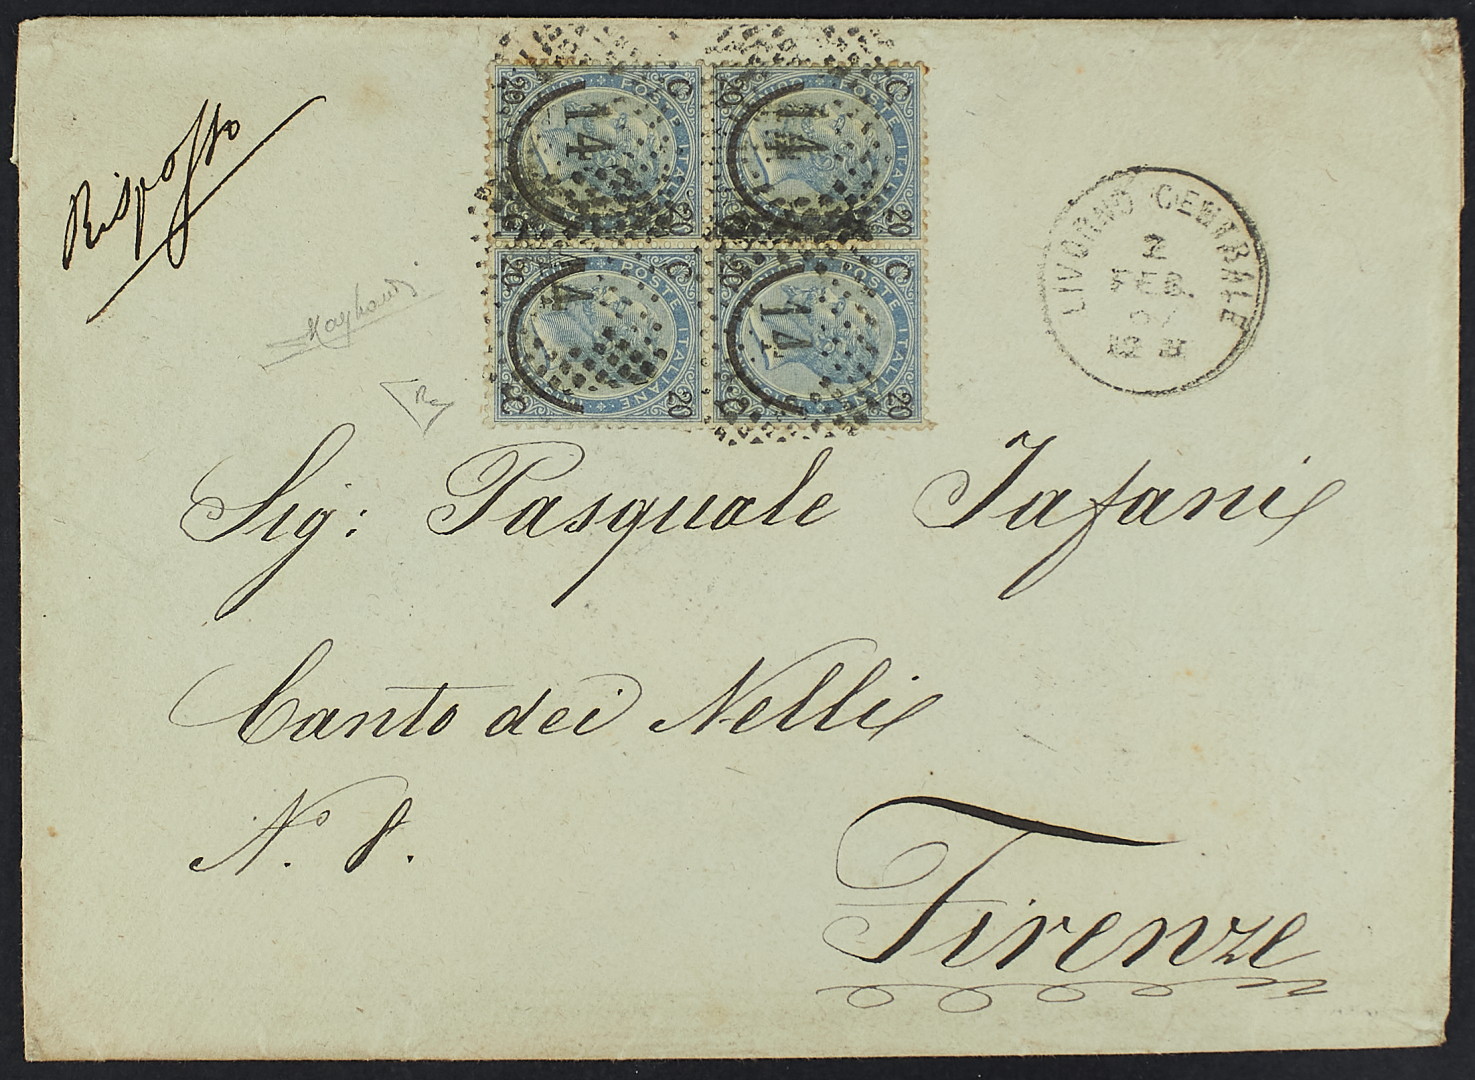 Risposto
C POSTE ITALIANE 20
20 C
14
C POSTE ITALIANE 20
20 C
14
C POSTE ITALIANE 20
20 C
14
C POSTE ITALIANE 20
20 C
14
LIVORNO CENTRALE
2
FEB.
67
Sig: Pasquale Tafani
Canto dei Nelli
N. 8.
Firenze